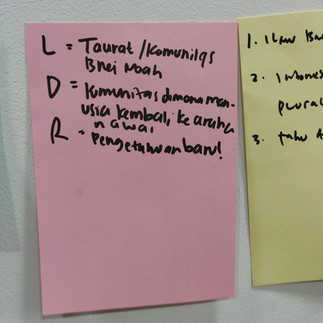 L = Taurat/Komunitas
Bnei Noah
D = Komunitas dimana man-
usia kembali ke arah
n awal
R = Pengetahuan baru!
1. Ilmu
2. Indones
plural
3. tahu